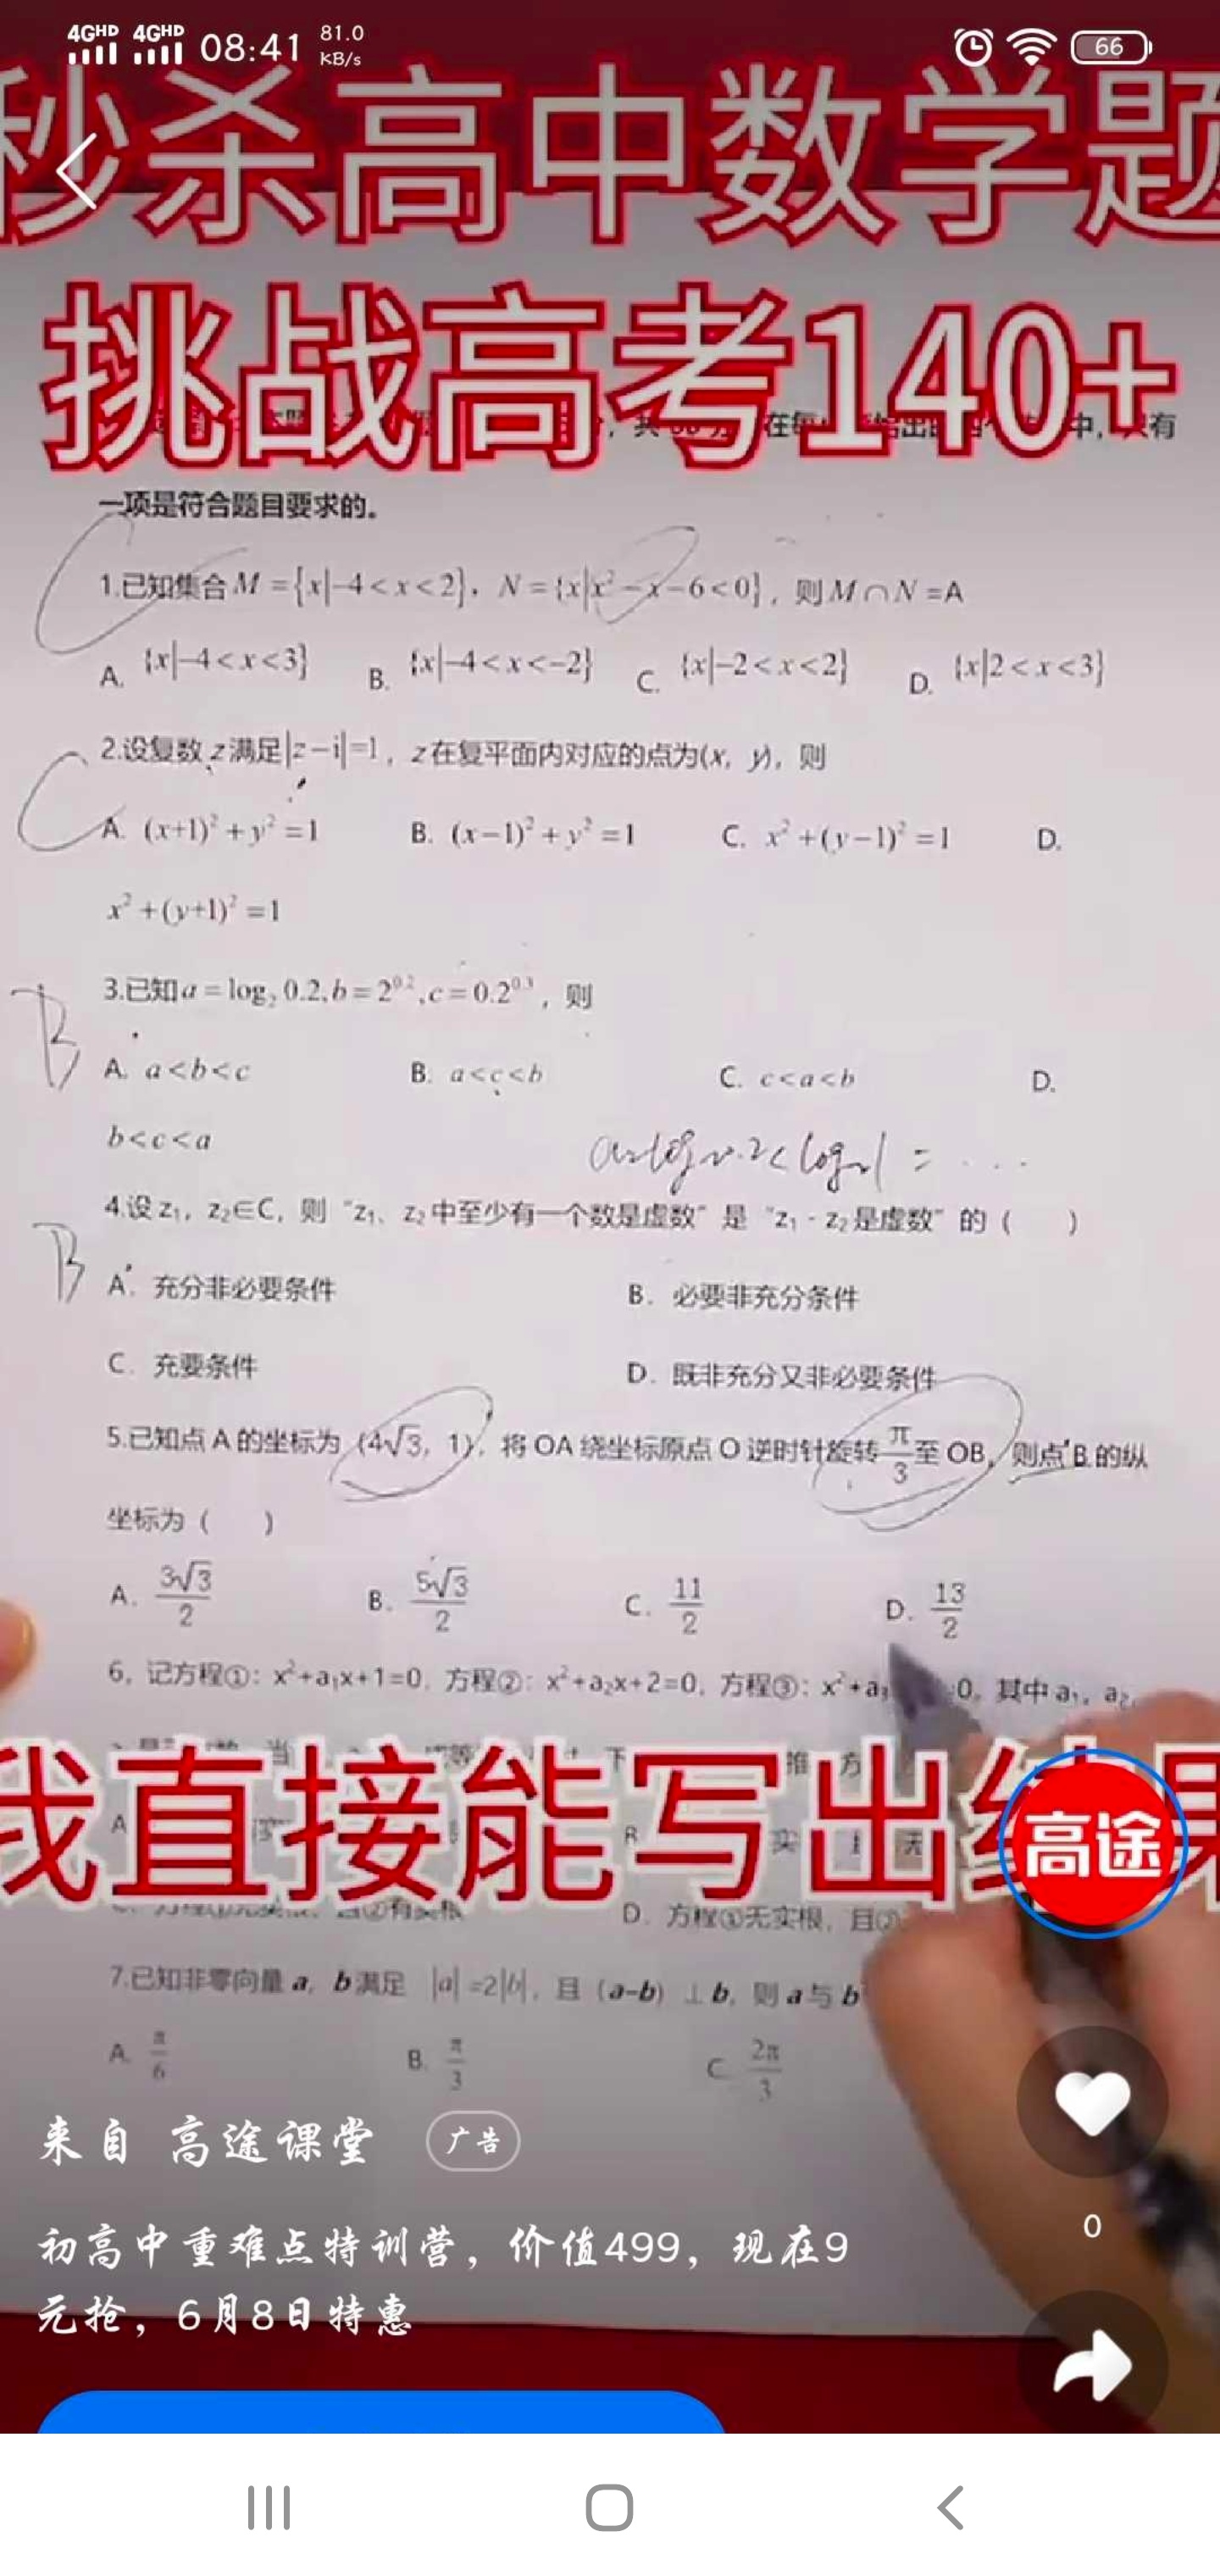 4GHD 4GHD 08:41 81.0 KB/s 66
秒杀高中数学题
挑战高考140+
一项是符合题目要求的。
1.已知集合M={x|-4<x<2}，N={x|x²-x-6<0}，则M∩N=A
A. {x|-4<x<3} B. {x|-4<x<-2} C. {x|-2<x<2} D. {x|2<x<3}
2.设复数z满足|z-i|=1，z在复平面内对应的点为(x, y)，则
A. (x+1)²+y²=1 B. (x-1)²+y²=1 C. x²+(y-1)²=1 D.
x²+(y+1)²=1
3.已知a=log₂0.2,b=2^0.2,c=0.2^0.3，则
A. a<b<c B. a<c<b C. c<a<b D.
b<c<a
4.设z₁，z₂∈C，则“z₁、z₂中至少有一个数是虚数”是“z₁-z₂是虚数”的（ ）
A. 充分非必要条件 B. 必要非充分条件
C. 充要条件 D. 既非充分又非必要条件
5.已知点A的坐标为(4√3，1)，将OA绕坐标原点O逆时针旋转π/3至OB，则点B的纵
坐标为（ ）
A. 3√3/2 B. 5√3/2 C. 11/2 D. 13/2
6，记方程①：x²+a₁x+1=0，方程②：x²+a₂x+2=0，方程③：x²+a₃ 0，其中a₁，a₂，
我直接能写出结果
高途
D. 方程①无实根，且②
7.已知非零向量a，b满足 |a|=2|b|，且（a-b）⊥b，则a与b
A. π/6 B. π/3 C. 2π/3
来自 高途课堂 广告
初高中重难点特训营，价值499，现在9
元抢，6月8日特惠
0